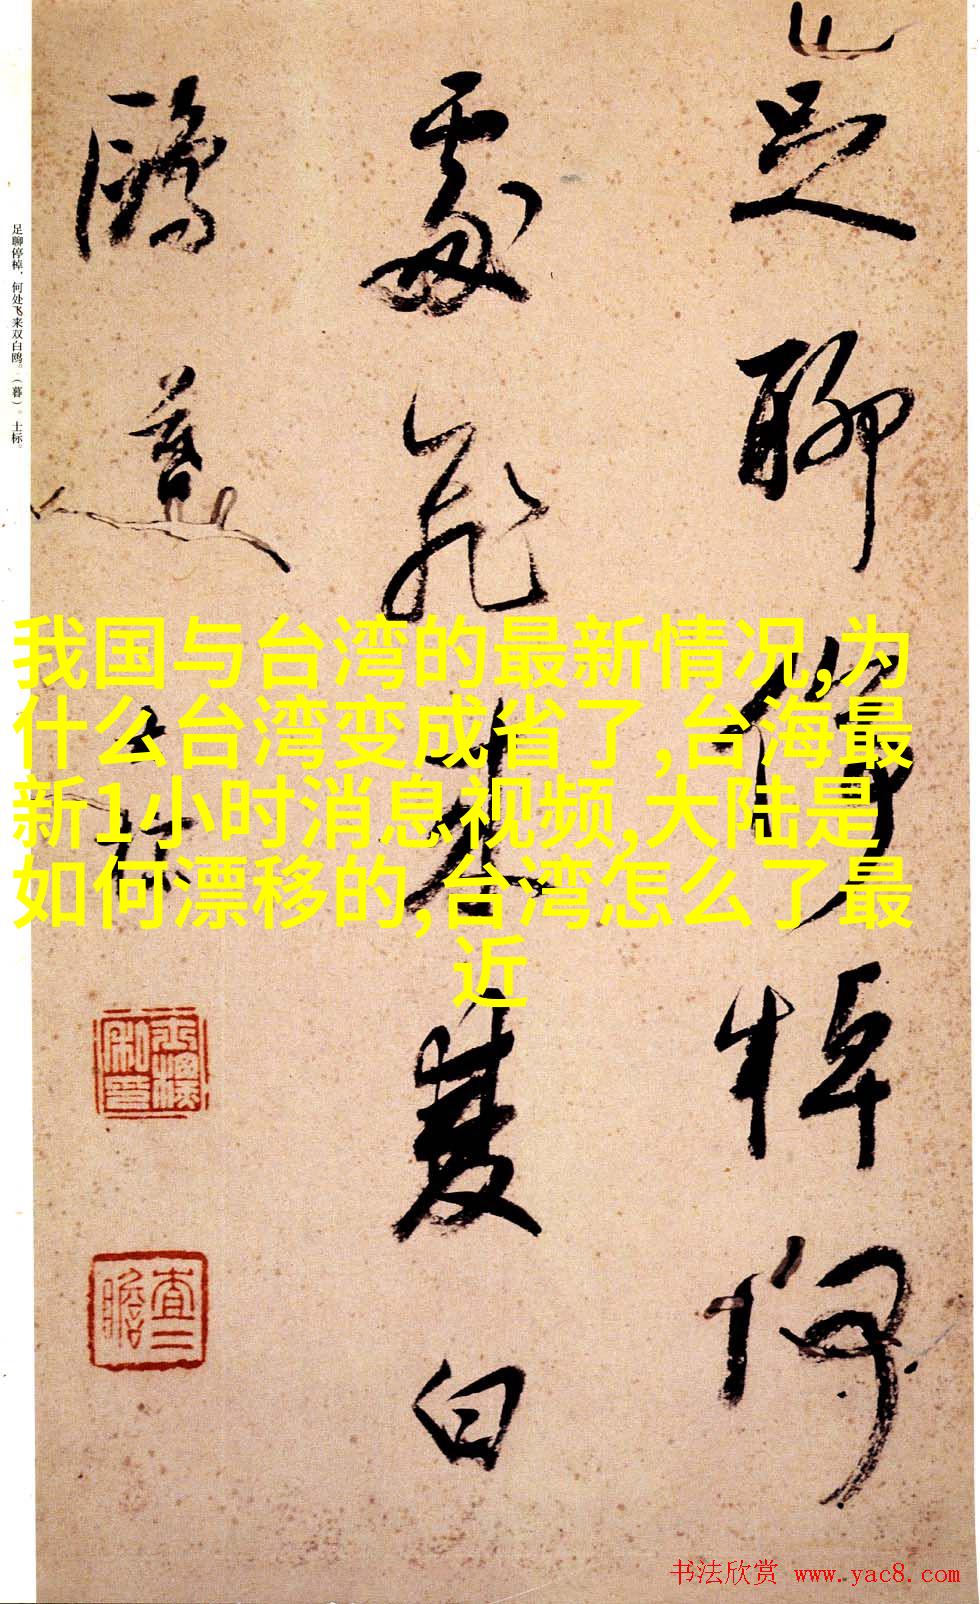 足聊停棹何
處飛来雙白
鷗暮
士标
足聊停棹,何处飞来双白鸥。(暮)。士标。
我国与台湾的最新情况,为
什么台湾变成省了,台海最
新1小时消息视频,大陆是
如何漂移的,台湾怎么了最
近
查二
瞻
书法欣赏 www.yac8.com